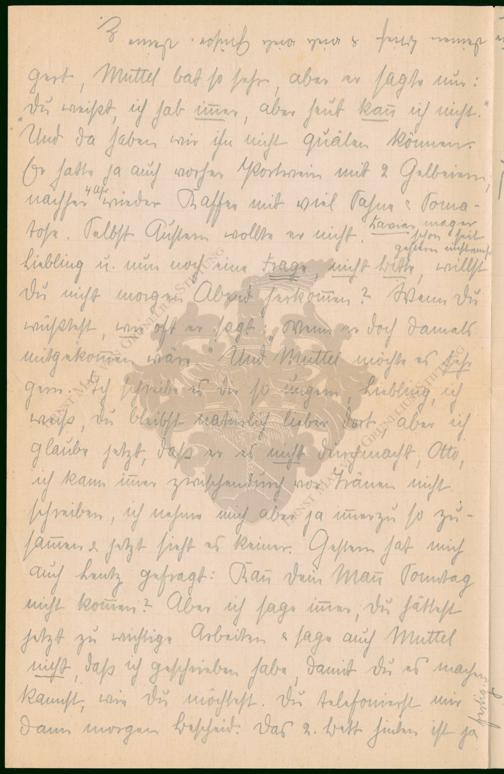 gert, Muttel bat so sehr, aber er sagte nur:
"Du weißt, ich hab immer, aber heut kann ich nicht."
Und da haben wir ihn nicht quälen können.
Er hatte ja auch vorher Portwein mit 2 Gelbeiern,
nachher 4 Uhr wieder Kaffee mit viel Sahne & Soma-
tose. Selbst Austern wollte er nicht. Kaviar mager
schon seit
gestern nicht mehr
Liebling u. nun noch eine Frage, nicht Bitte, willst
Du nicht morgen Abend herkommen? Wenn Du
wüßtest, wie oft er sagt: Wenn er doch damals
mitgekommen wäre. Und Muttel möchte es sehr
gern. Ich schreibe es Dir so ungern, Liebling, ich
weiß, Du bleibst natürlich lieber dort, aber ich
glaube jetzt, daß er es nicht durchmacht, Otto,
ich kann immer zwischendurch vor Tränen nicht
schreiben, ich nehme mich aber ja immerzu so zu-
sammen & jetzt sieht es keiner. Gestern hat mich
auch Lentz gefragt: Kann Dein Mann Sonntag
nicht kommen? Aber ich sage immer, Du hättest
jetzt zu wichtige Arbeiten & sage auch Muttel
nicht, daß ich geschrieben habe, damit Du es machen
kannst, wie Du möchtest. Du telefonierst mir
dann morgen Bescheid. Das 2. Bett hinten ist ja